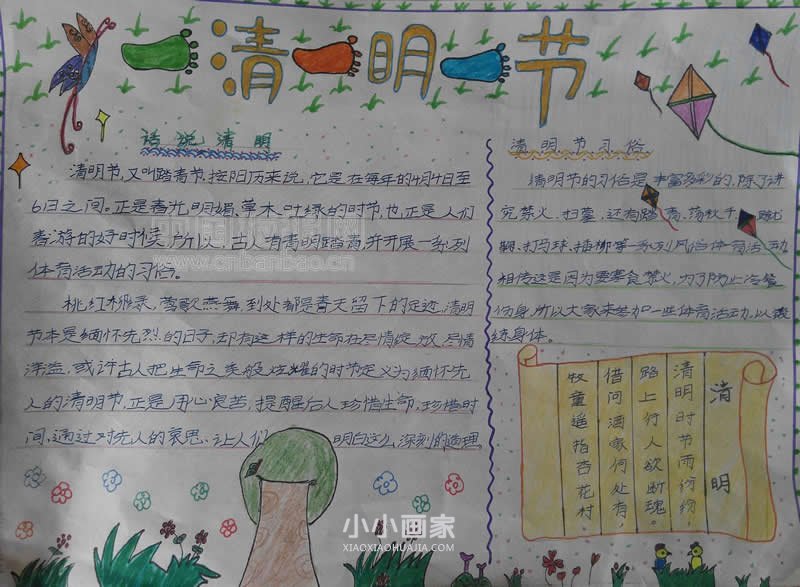 清明节
话说清明
清明节，又叫踏青节，按阳历来说，它是在每年的4月4日至
6日之间。正是春光明媚草木叶绿的时节，也正是人们
春游的好时候，所以，古人有青明踏高，并开展一系列
体育活动的习俗。
桃红柳绿，莺歌燕舞到处都是春天留下的足迹，清明
节本是缅怀先烈的日子，却有这样的生命在尽情绽放，尽情
洋溢，或许古人把生命之美般炫耀的时节定义为缅怀先
人的清明节，正是用心良苦，提醒后人珍惜生命，珍惜时
间，通过对先人的哀思、让人们明白这么深刻的道理
清明节习俗
清明节的习俗是丰富多彩的，除了讲
究禁火、扫墓，还有踏青、荡秋千、蹴
鞠、打马球、插柳等一系列风俗体育活动
相传这是因为要寒食禁火，为了防止冷餐
伤身，所以大家来参加一些体育活动，以锻
练身体。
清明
清明时节雨纷纷，
路上行人欲断魂。
借问酒家何处有，
牧童遥指杏花村。
www.cnbanbao.cn
小小画家
XIAOXIAOHUAJIA.COM